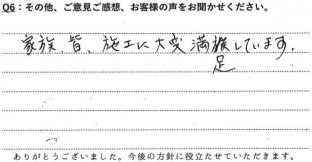 Q6：その他、ご意見ご感想、お客様の声をお聞かせください。
家族、皆、施工に大変満足しています。
ありがとうございました。今後の方針に役立たせていただきます。